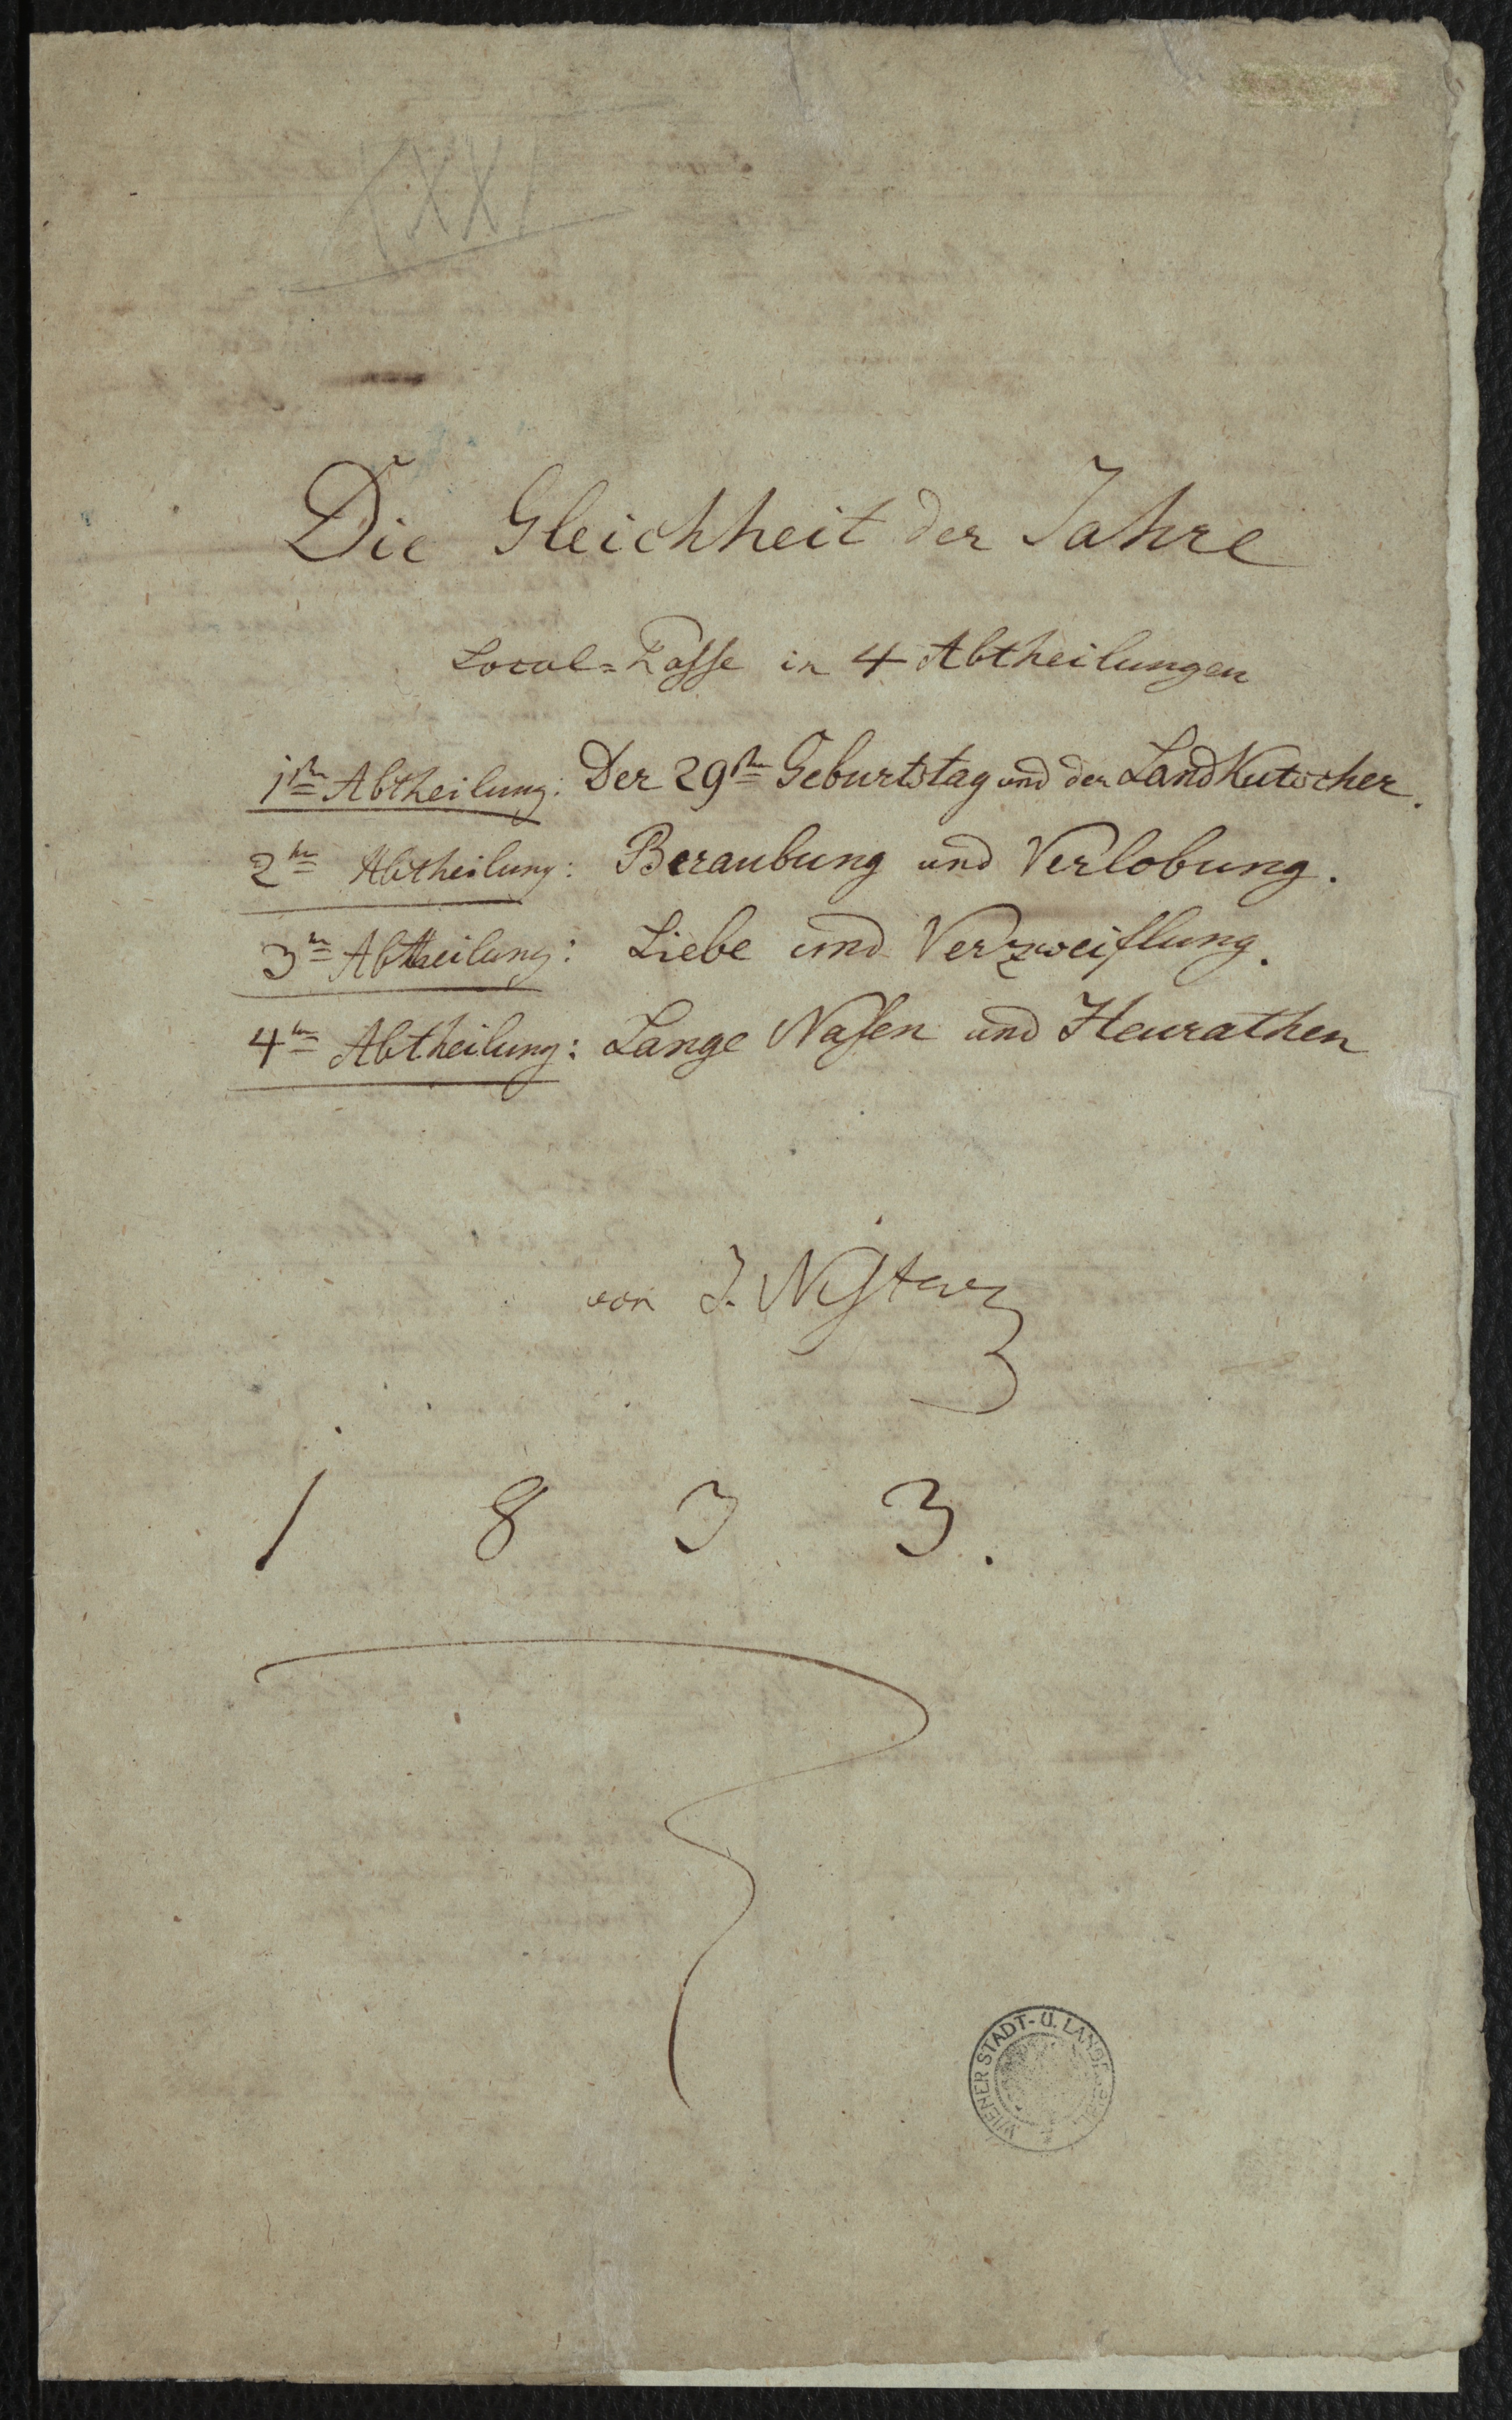 XXI
Die Gleichheit der Jahre
Local=Posse in 4 Abtheilungen
1te Abtheilung: Der 29ste Geburtstag und der LandKutscher.
2te Abtheilung: Beraubung und Verlobung.
3te Abtheilung: Liebe und Verzweiflung.
4te Abtheilung: Lange Nasen und Heurathen
von J. Nestroy
1 8 3 3.
WIENER STADT- U.